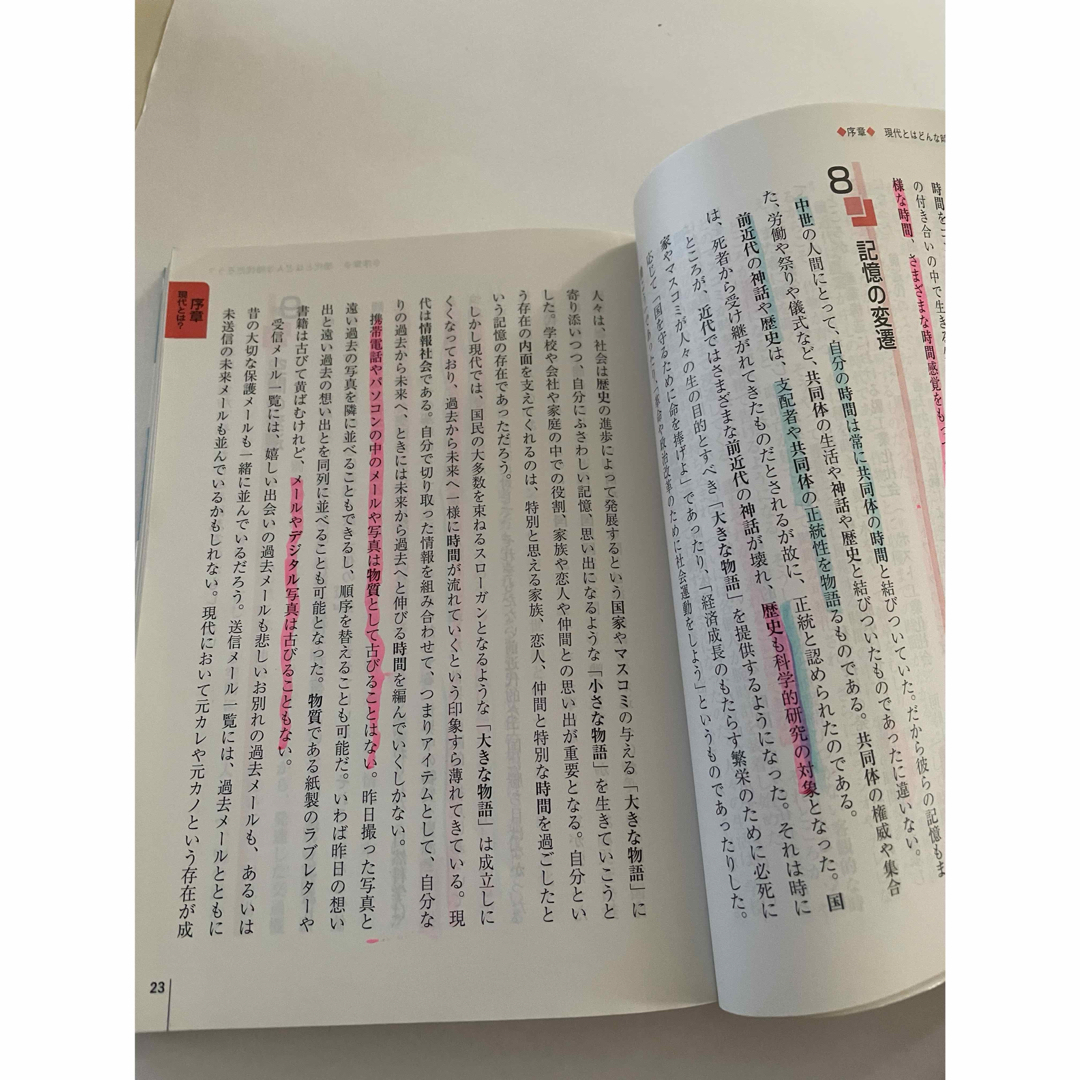 ◆序章◆ 現代とはどんな時
時間を
の付き合いの中で生きる
様な時間、さまざまな時間感覚をもつ
8 記憶の変遷
中世の人間にとって、自分の時間は常に共同体の時間と結びついていた。だから彼らの記憶もま
た、労働や祭りや儀式など、共同体の生活や神話や歴史と結びついたものであったに違いない。
前近代の神話や歴史は、支配者や共同体の正統性を物語るものである。共同体の権威や集合
は、死者から受け継がれてきたものだとされるが故に、正統と認められたのである。
ところが、近代ではさまざまな前近代の神話が壊れ、歴史も科学的研究の対象となった。国
家やマスコミが人々の生の目的とすべき「大きな物語」を提供するようになった。それは時に
応じて「国を守るために命を捧げよ」であったり、「経済成長のもたらす繁栄のために必死に
革命や政治改革のために社会運動をしよう」というものであったりした。
人々は、社会は歴史の進歩によって発展するという国家やマスコミの与える「大きな物語」に
寄り添いつつ、自分にふさわしい記憶、思い出になるような「小さな物語」を生きていこうと
した。学校や会社や家庭の中での役割、家族や恋人や仲間との思い出が重要となる。自分とい
う存在の内面を支えてくれるのは、特別と思える家族、恋人、仲間と特別な時間を過ごしたと
いう記憶の存在であっただろう。
しかし現代では、国民の大多数を束ねるスローガンとなるような「大きな物語」は成立しに
くくなっており、過去から未来へ一様に時間が流れていくという印象すら薄れてきている。現
代は情報社会である。自分で切り取った情報を組み合わせて、つまりアイテムとして、自分な
りの過去から未来へ、ときには未来から過去へと伸びる時間を編んでいくしかない。
携帯電話やパソコンの中のメールや写真は物質として古びることはない。昨日撮った写真と
遠い過去の写真を隣に並べることもできるし、順序を替えることも可能だ。いわば昨日の想い
出と遠い過去の想い出とを同列に並べることも可能となった。物質である紙製のラブレターや
書籍は古びて黄ばむけれど、メールやデジタル写真は古びることもない。
受信メール一覧には、嬉しい出会いの過去メールも悲しいお別れの過去メールも、あるいは
昔の大切な保護メールも一緒に並んでいるだろう。送信メール一覧には、過去メールとともに
未送信の未来メールも並んでいるかもしれない。現代において元カレや元カノという存在が成
序章
現代とは？
23